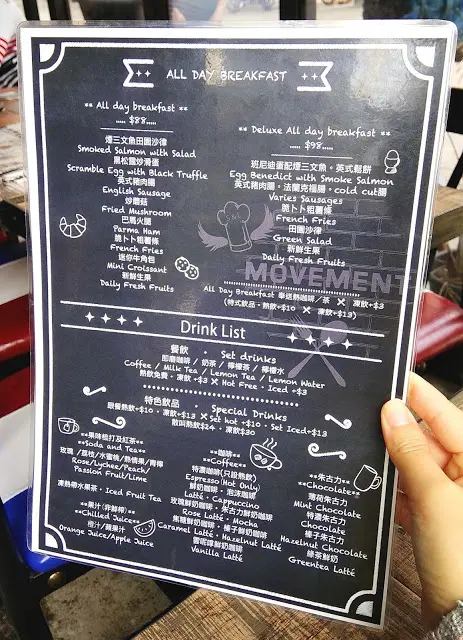 ALL DAY BREAKFAST
** All day breakfast **
..... $88.....
煙三文魚田園沙律
Smoked Salmon with Salad
黑松露炒滑蛋
Scramble Egg with Black Truffle
英式豬肉腸
English Sausage
炒蘑菇
Fried Mushroom
巴馬火腿
Parma Ham
脆卜卜粗薯條
French Fries
迷你牛角包
Mini Croissant
新鮮生果
Daily Fresh Fruits
** Deluxe All day breakfast **
..... $98.....
班尼迪蛋配煙三文魚。英式鬆餅
Egg Benedict with Smoke Salmon
英式豬肉腸。法蘭克福腸。cold cut腸
Varies Sausages
脆卜卜粗薯條
French Fries
田園沙律
Green Salad
新鮮生果
Daily Fresh Fruits
MOVEMENT
All Day Breakfast 奉送熱咖啡/茶 X 凍飲+$3
(特式飲品。熱飲+$10 X 凍飲+$13)
Drink List
餐飲 。 Set drinks
即磨咖啡 / 奶茶 / 檸檬茶 / 檸檬水
Coffee / Milk Tea / Lemon Tea / Lemon Water
熱飲免費。凍飲+$3 X Hot Free . Iced +$3
特色飲品 Special Drinks
跟餐熱飲+$10。凍飲+$13 X Set hot +$10 . Set Iced+$13
散叫熱飲$24。凍飲$30
**果味梳打及紅茶**
**Soda and Tea**
玫瑰 /荔枝/水蜜桃/熱情果/青檸
Rose/Lychee/Peach/
Passion Fruit/Lime
凍熱帶水果茶。Iced Fruit Tea
**果汁(非鮮榨)**
**Chilled Juice**
橙汁/蘋果汁
Orange Juice/Apple Juice
**咖啡**
**Coffee**
特濃咖啡(只設熱飲)
Espresso (Hot Only)
鮮奶咖啡。泡沫咖啡
Latté . Cappuccino
玫瑰鮮奶咖啡。朱古力鮮奶咖啡
Rose Latté . Mocha
焦糖鮮奶咖啡。榛子鮮奶咖啡
Caramel Latté . Hazelnut Latté
雲呢嗱鮮奶咖啡
Vanilla Latté
**朱古力**
**Chocolate**
薄荷朱古力
Mint Chocolate
特濃朱古力
Chocolate
榛子朱古力
Hazelnut Chocolate
綠茶鮮奶
Greentea Latté